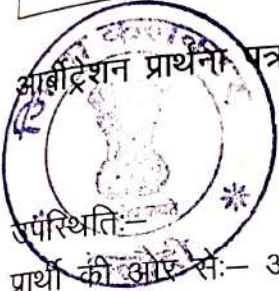 आर्बीट्रेशन प्रार्थना पत्र
उपस्थिति:–
प्रार्थी की ओर से:– अ